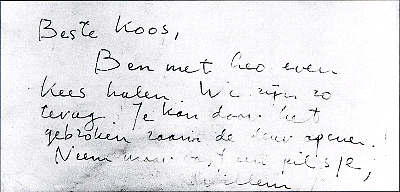 Beste Koos,
Ben met Leo even
Kees halen. We zijn zo
terug! Je kan door het
gebroken raam de deur openen.
Neem maar vast een pilsje,
Willem